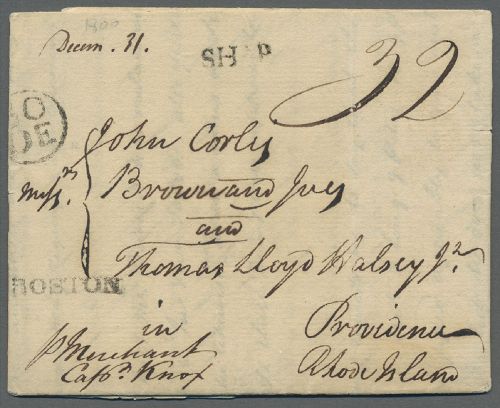 1800
Decem. 31.
SHIP
32
30
DE
John Corlis
Mess.rs
Brown and Ives
and
Thomas Lloyd Halsey Jr.
BOSTON
in
Providence
Rhode Island
p Merchant
Capn. Knox